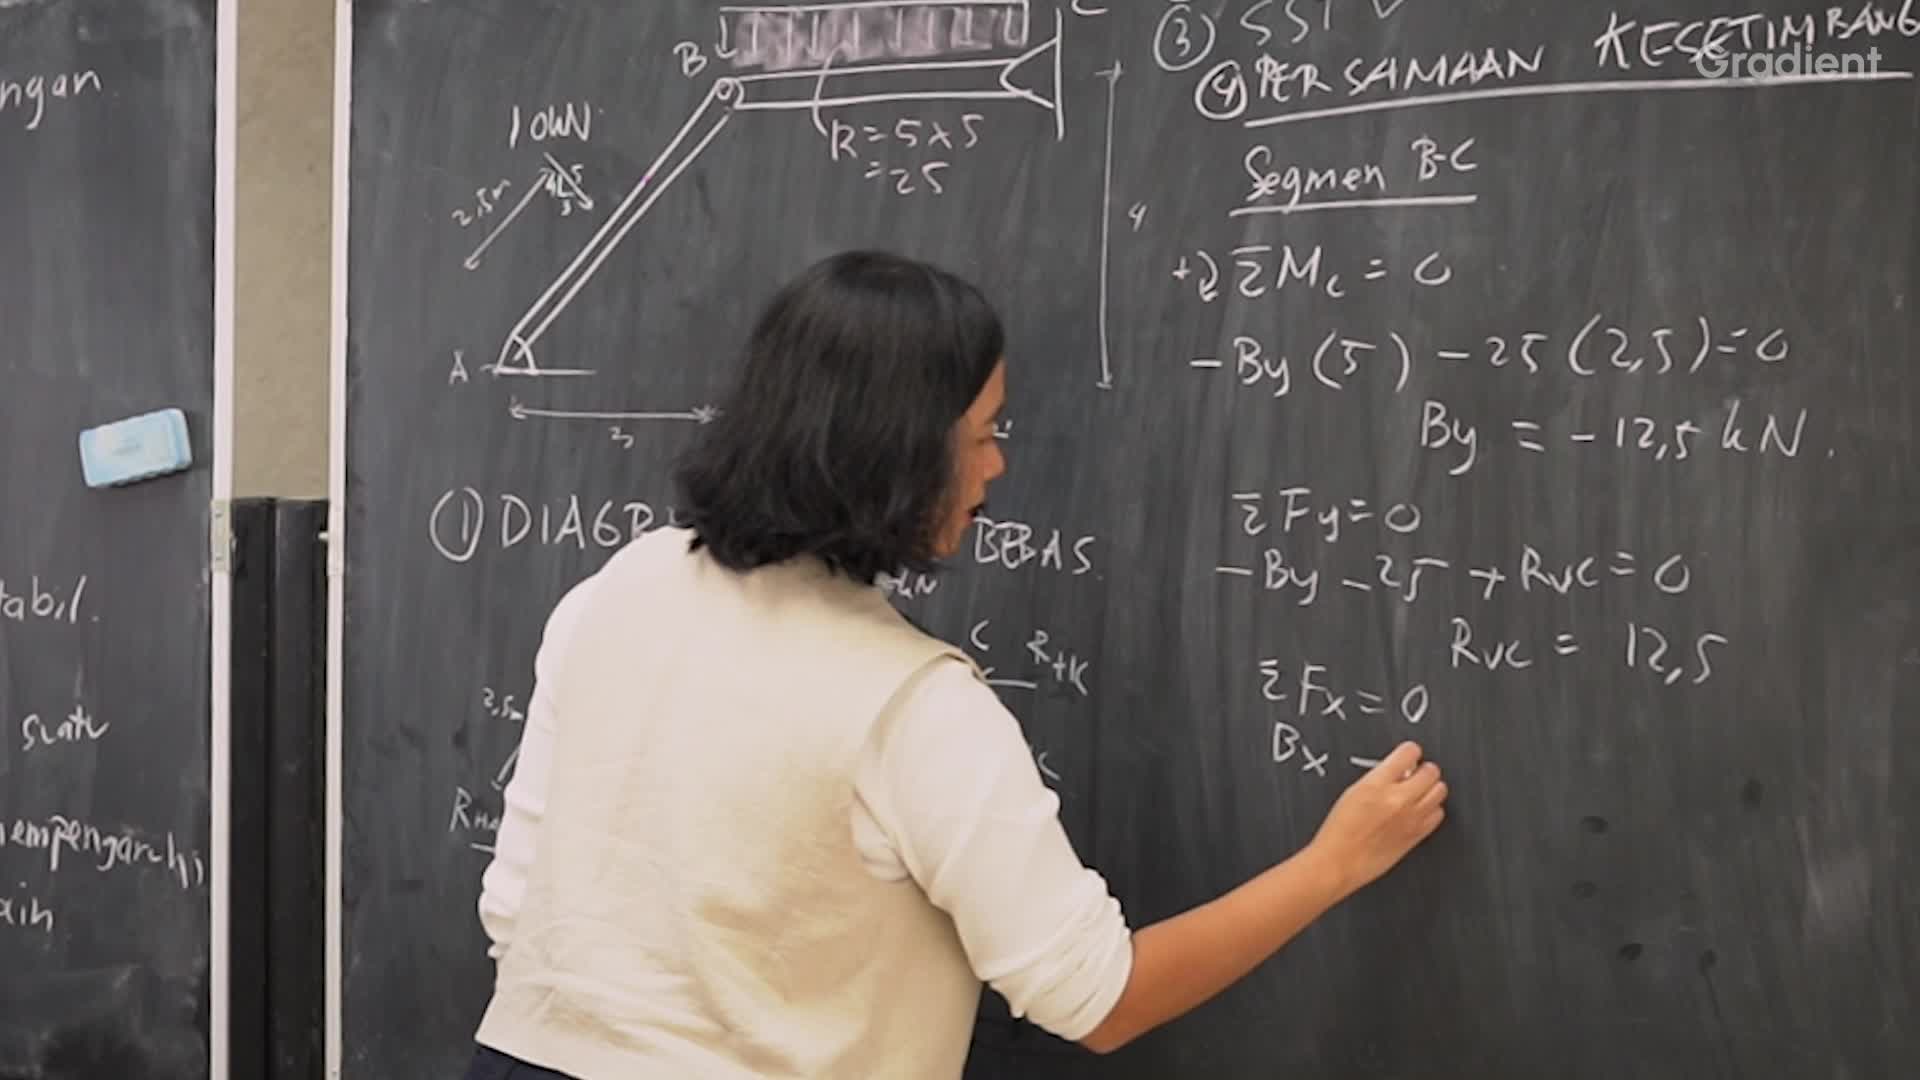 ngan
tabil.
suatu
B
10 kN
2,5m
R = 5 x 5
= 25
4
A
3
① DIAGR
BEBAS
kN
C
2,5m
③ SST ✓
④ PERSAMAAN KESETIMBANG
Gradient
Segmen B-C
ΣMc = 0
- By (5) - 25 (2,5) = 0
By = - 12,5 kN.
ΣFy = 0
- By - 25 + Rvc = 0
Rvc = 12,5
ΣFx = 0
Bx -